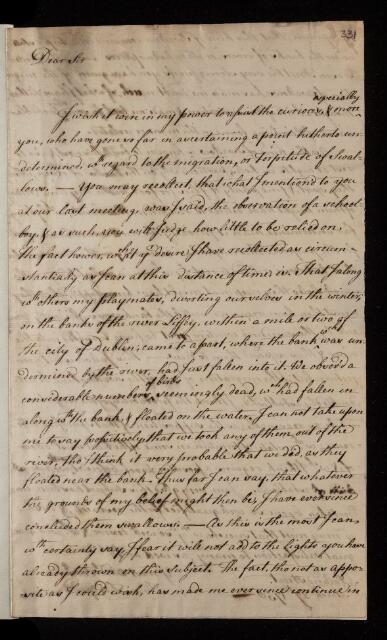 331
Dear Sir
I wish it were in my power to assist the curious, & especially
you, who have gone so far in ascertaining a point hitherto un-
determined, wth regard to the migration, or Torpitude of Swal-
lows. — You may recollect, that what I mentiond to you
at our last meeting, was, I said, the observation of a school
boy, & as such, you will judge how little to be relied on.
The fact however, wch at yr desire, I have recollected as circum-
stantialy as I can at this distance of time is. That I along
wth others my playmates, diverting ourselves in the winter,
on the banks of the river Liffey, within a mile or two of
the city of Dublin, came to a part, where the bank was un-
dermined by the river, & had just fallen into it. We observd a
considerable number of birds seemingly dead, wch had fallen in
along wth the bank, & floated on the water. I can not take upon
me to say positively that we took any of them out of the
river, tho' I think it very probable that we did, as they
floated near the bank. Thus far I can say, that whatever
the grounds of my belief might then be, I have ever since
concluded them swallows. — As this is the most I can
wth certainty say, I fear it will not add to the lights you have
already thrown on this subject. The fact, tho not as appo-
site as I could wish, has made me ever since continue in